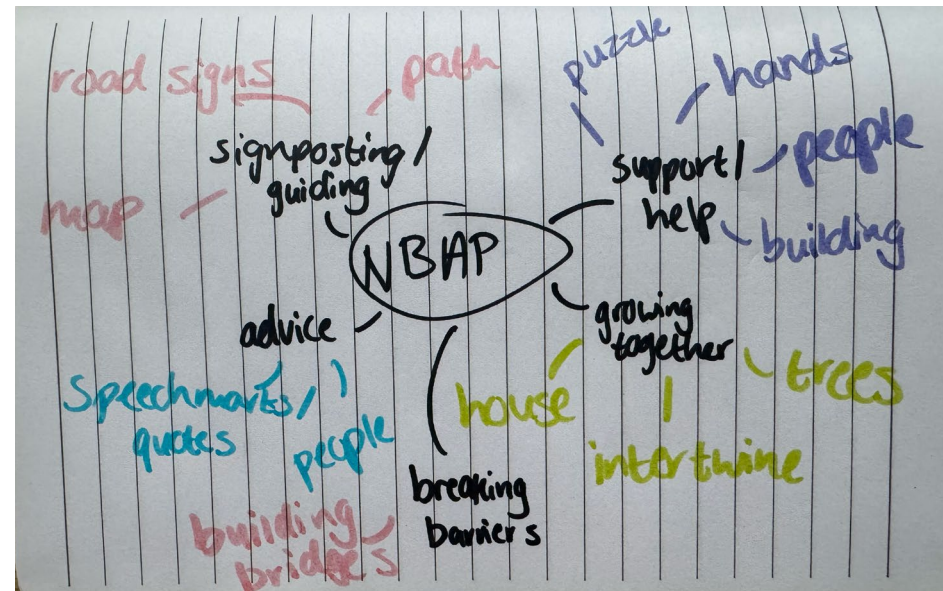 road signs
path
puzzle
hands
signposting/
guiding
support/
help
people
map
building
NBAP
advice
growing
together
speechmarks/
quotes
people
house
trees
intertwine
breaking
barriers
building
bridges